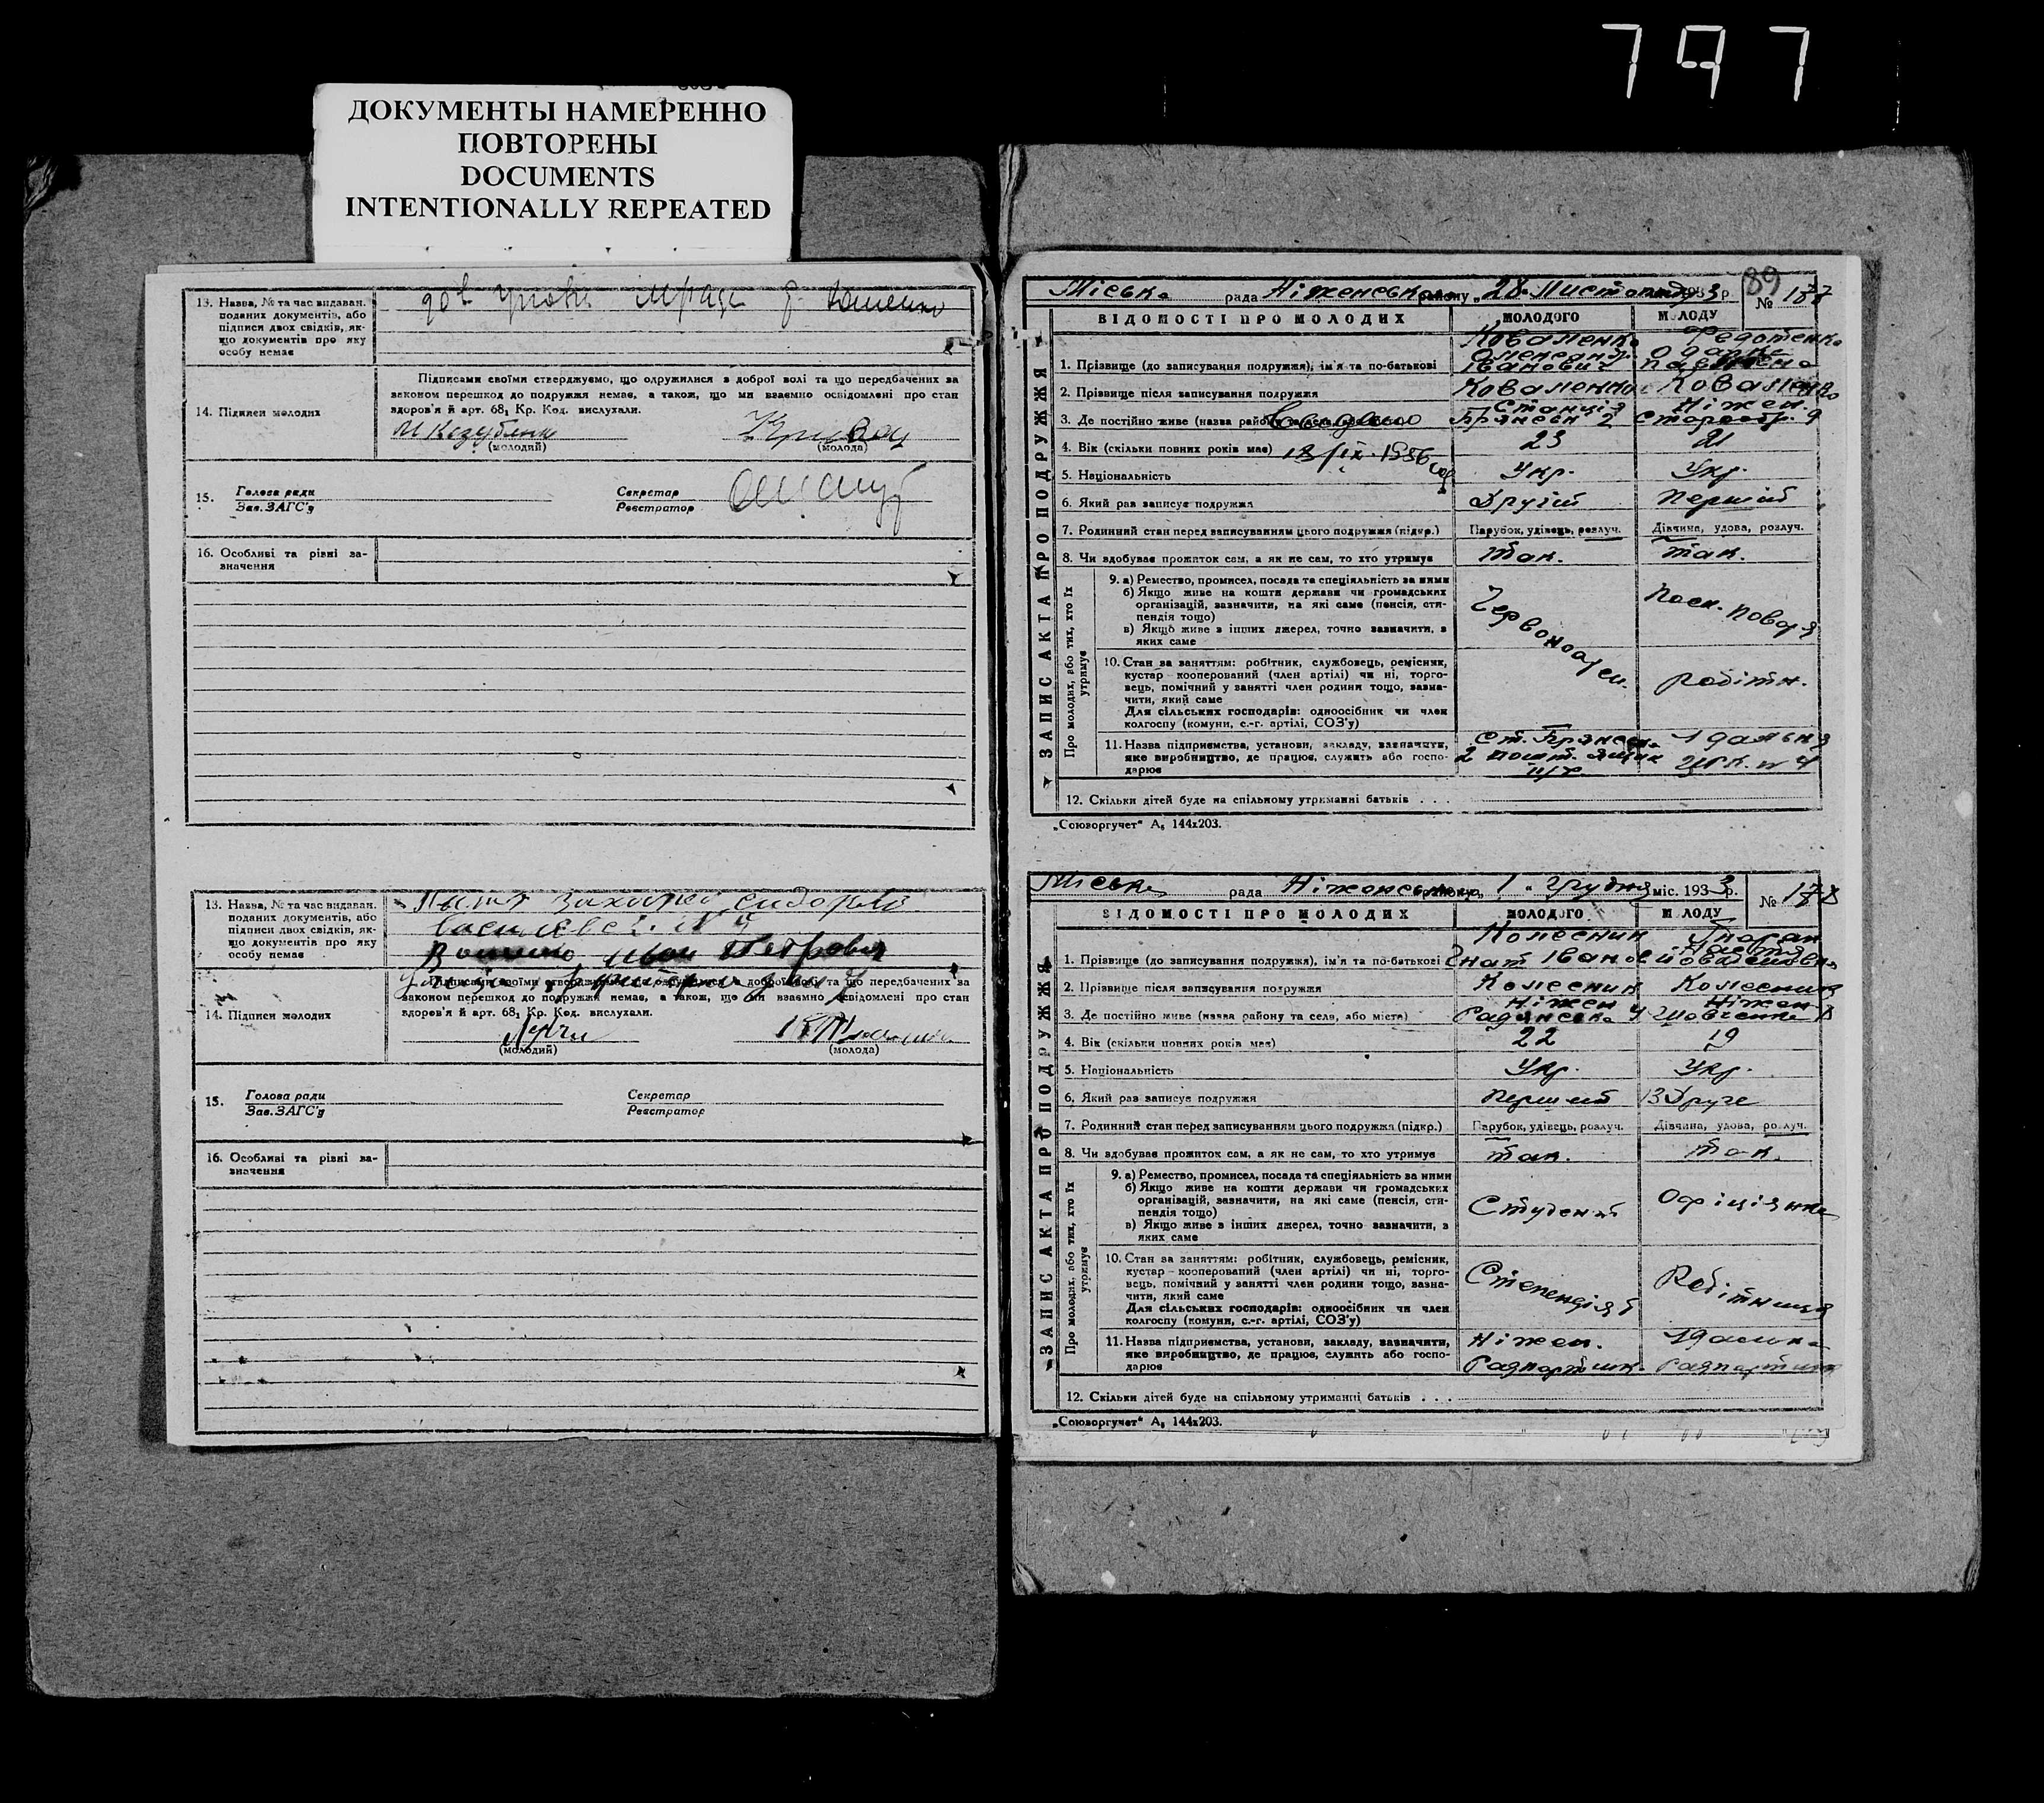 797
ДОКУМЕНТЫ НАМЕРЕННО
ПОВТОРЕНЫ
DOCUMENTS
INTENTIONALLY REPEATED
13. Назва, № та час видаван.
поданих документів, або
підписи двох свідків, як-
що документів про яку
особу немає
Підписами своїми стверджуємо, що одружилися з доброї волі та що передбачених за
законом перешкод до подружжя немає, а також, що ми взаємно освідомлені про стан
здоров'я й арт. 68₁ Кр. Код. вислухали.
14. Підписи молодих
(молодий) (молода)
15. Голова ради Секретар
Зав. ЗАГС'у Реєстратор
16. Особливі та різні за-
значення
13. Назва, № та час видаван.
поданих документів, або
підписи двох свідків, як-
що документів про яку
особу немає
Иван Петрович
Підписами своїми стверджуємо, що одружилися з доброї волі та що передбачених за
законом перешкод до подружжя немає, а також, що ми взаємно освідомлені про стан
здоров'я й арт. 68₁ Кр. Код. вислухали.
14. Підписи молодих
(молодий) (молода)
15. Голова ради Секретар
Зав. ЗАГС'у Реєстратор
16. Особливі та різні за-
значення
89
Міська рада Ніженського району „28" Листопаду 1933 р. № 177
ЗАПИС АКТА ПРО ПОДРУЖЖЯ
ВІДОМОСТІ ПРО МОЛОДИХ МОЛОДОГО МОЛОДУ
Коваленко Федотенко
Олександр Одарка
1. Прізвище (до записування подружжя), ім'я та по-батькові Іванович Павловна
2. Прізвище після записування подружжя Коваленко Коваленко
Станція Ніжен.
3. Де постійно живе (назва району та села, або міста) Брянськ 2 9
4. Вік (скільки повних років має) 23 21
5. Національність Укр. Укр.
6. Який раз записує подружжя Другий Перший
7. Родинний стан перед записуванням цього подружжя (підкр.) Парубок, удівець, розлуч. Дівчина, удова, розлуч.
8. Чи здобуває прожиток сам, а як не сам, то хто утримує Так. Так.
Про молодих, або тих, хто їх утримує
9. а) Ремество, промисел, посада та спеціяльність за ними
б) Якщо живе на кошти держави чи громадських
організацій, зазначити, на які саме (пенсія, сти-
пендія тощо)
в) Якщо живе з інших джерел, точно зазначити, з
яких саме
Червоноарм.
10. Стан за заняттям: робітник, службовець, ремісник,
кустар кооперований (член артілі) чи ні, торго-
вець, помічний у занятті член родини тощо, зазна-
чити, який саме
Для сільських господарів: одноосібник чи член
колгоспу (комуни, с.-г. артілі, СОЗ'у)
Робітн.
11. Назва підприємства, установи, закладу, зазначити,
яке виробництво, де працює, служить або госпо-
дарює
Ст. Брянськ
2 пошт. ящик
Їдальня
12. Скільки дітей буде на спільному утриманні батьків . . .
„Союзоргучет" А₅ 144x203.
Міська рада Ніженського району „1" Грудня міс. 1933 р. № 178
ЗАПИС АКТА ПРО ПОДРУЖЖЯ
ВІДОМОСТІ ПРО МОЛОДИХ МОЛОДОГО МОЛОДУ
Колесник
1. Прізвище (до записування подружжя), ім'я та по-батькові Гнат Іванов
2. Прізвище після записування подружжя Колесник Колесник
Ніжен Ніжен
3. Де постійно живе (назва району та села, або міста) Радянська 4 Шевченка
4. Вік (скільки повних років має) 22 19
5. Національність Укр. Укр.
6. Який раз записує подружжя Перший Друге
7. Родинний стан перед записуванням цього подружжя (підкр.) Парубок, удівець, розлуч. Дівчина, удова, розлуч.
8. Чи здобуває прожиток сам, а як не сам, то хто утримує Так. Так.
Про молодих, або тих, хто їх утримує
9. а) Ремество, промисел, посада та спеціяльність за ними
б) Якщо живе на кошти держави чи громадських
організацій, зазначити, на які саме (пенсія, сти-
пендія тощо)
в) Якщо живе з інших джерел, точно зазначити, з
яких саме
Студент Офіціянка
10. Стан за заняттям: робітник, службовець, ремісник,
кустар кооперований (член артілі) чи ні, торго-
вець, помічний у занятті член родини тощо, зазна-
чити, який саме
Для сільських господарів: одноосібник чи член
колгоспу (комуни, с.-г. артілі, СОЗ'у)
Степендіят Робітниця
11. Назва підприємства, установи, закладу, зазначити,
яке виробництво, де працює, служить або госпо-
дарює
Ніжен.
Радпартшк. Радпартшк
12. Скільки дітей буде на спільному утриманні батьків . . .
„Союзоргучет" А₅ 144x203.